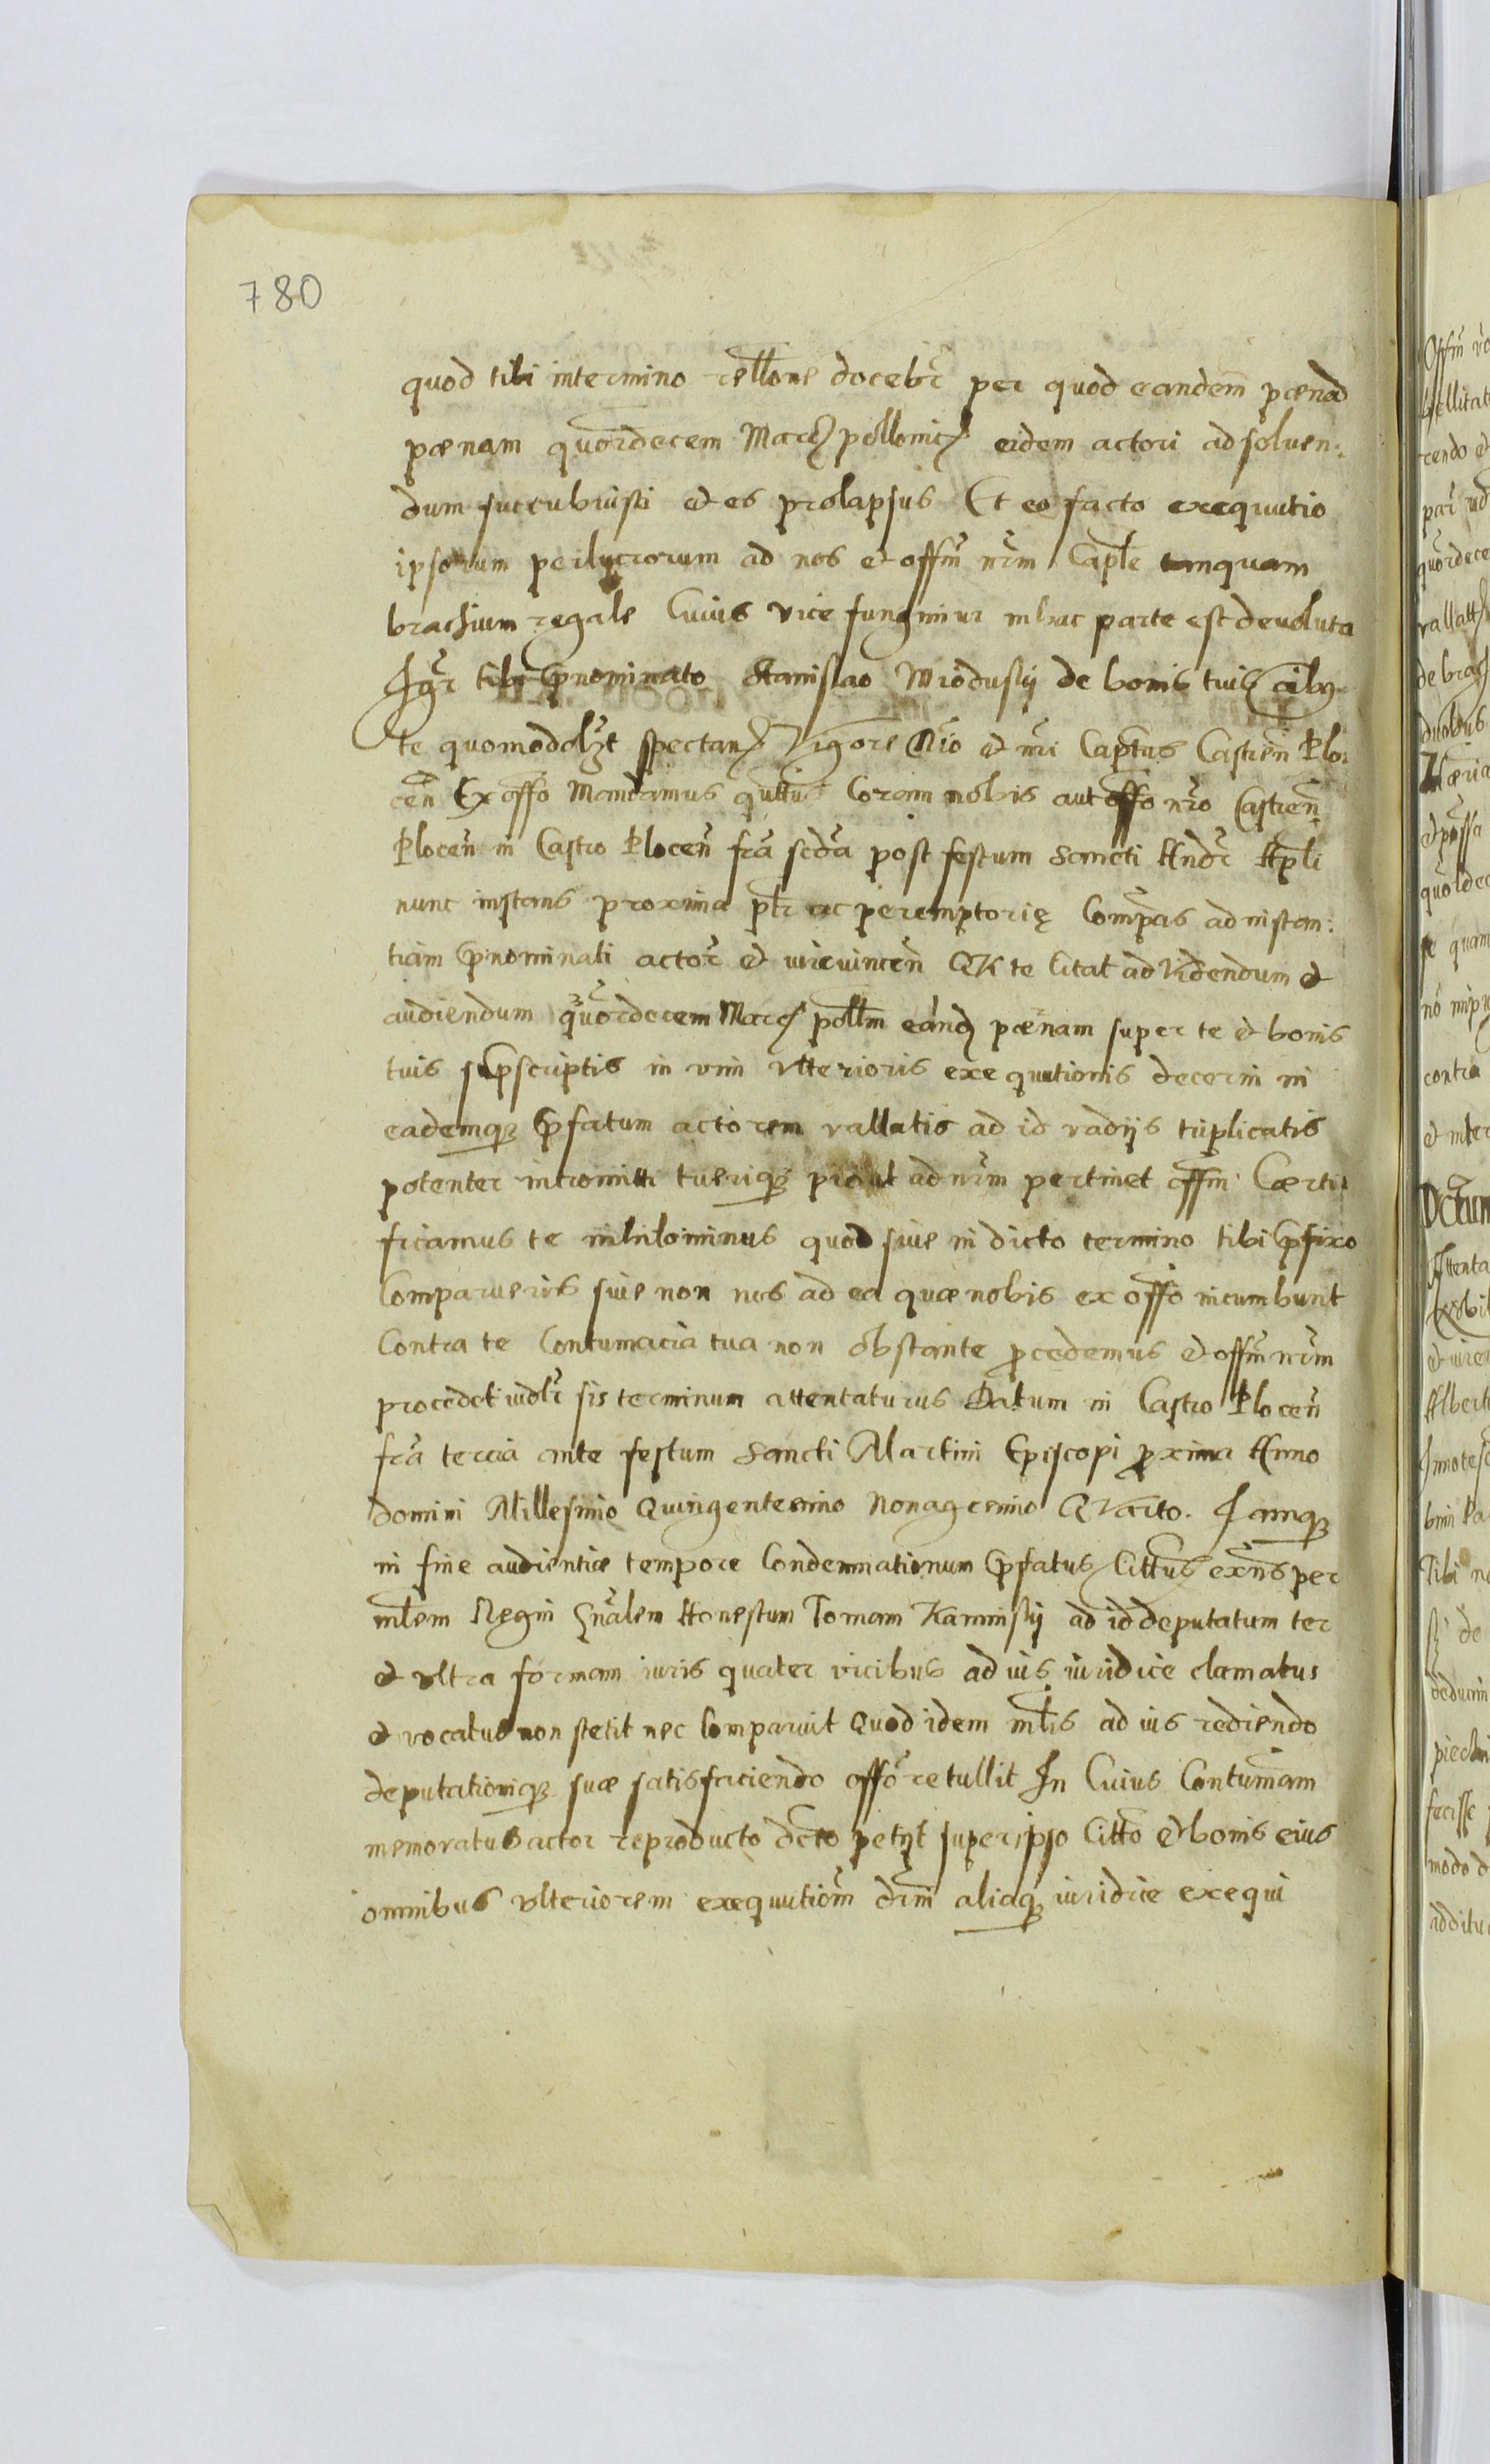 780
quod tibi in termino rellone docebr per quod eandem pænad
pænam quordecem Marc pollonic eidem actori ad soluen:
dum succubuisti et es prolapsus Et eo facto exequutio
ipsorum perlucrorum ad nos et offm nrm Caple tanquam
brachium regale Cuius vice fungimur in hac parte est devoluta
Igr tibi pnominato Stanislao Miodusky de bonis tuis oibus
te quomodolzt spectan Vigore nrio et nri Captus Castren Plo:
cen Ex offo Mandamus quttus Coram nobis aut offo nro Castren
Plocen in Castro Plocen fra scda post festum Sancti Andr Apli
nunc instans proxima ptr ac peremptorię Compas ad instan:
tiam pnominati actor et iurevincen QK te Citat ad videndum et
audiendum quordecem Marc pollm eand pænam super te et bonis
tuis suprscriptis in vim vlterioris exequutionis decerni in
eademque pfatum actorem vallatis ad id vadijs triplicatis
potenter intromitti tuerique prout ad nrm pertinet offm Cærti
ficamus te nihilominus quod siue in dicto termino tibi pfixo
Comparueris siue non nos ad ea quæ nobis ex offo incumbunt
Contra te Contumacia tua non obstante procedemus et offm nrm
procedet indlr sis terminum attentaturus Datum in Castro Plocen
fra tercia ante festum Sancti Martini Episcopi proxima Anno
domini Millesimo Quingentesimo Nonagesimo Qvarto. Iamque
in fine audientiæ tempore Condemnationum pfatus Cittus exns per
mlem Regni Gnalem Honestum Tomam Kaminsky ad id deputatum ter
et vltra formam iuris quater vicibus ad ius iuridice clamatus
et vocatus non stetit nec Comparuit Quod idem mlis ad ius rediendo
deputationique suæ satisfaciendo offo retullit In Cuius Contumam
memoratus actor reproducto dcto petyt super ipso Citto et bonis eius
omnibus vlteriorem exequutiom drm aliaque iuridice exequi